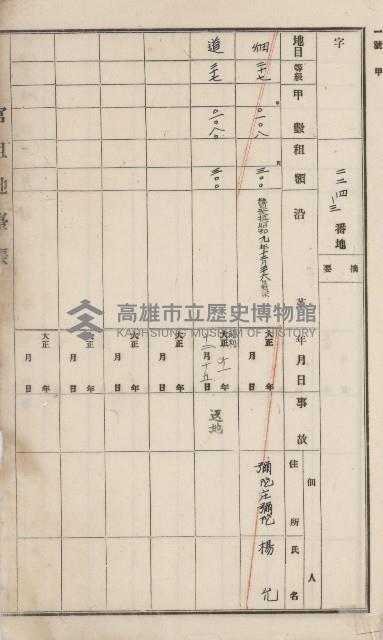 一號甲
字
二二四ノ三
番地
摘要
地目
等級
甲數
租額
沿革
年月日
事故
佃人
住所
氏名
畑
二十七
〇一〇八
三〇〇
大正
年
月
日
彌陀庄彌陀
楊允
道
二七
〇一〇八〇
三〇〇
昭和
大正
十一年
十二月十五日
還地
大正
年
月
日
大正
年
月
日
大正
年
月
日
大正
年
月
日
官租地臺帳
高雄市立歷史博物館
KAOHSIUNG MUSEUM OF HISTORY